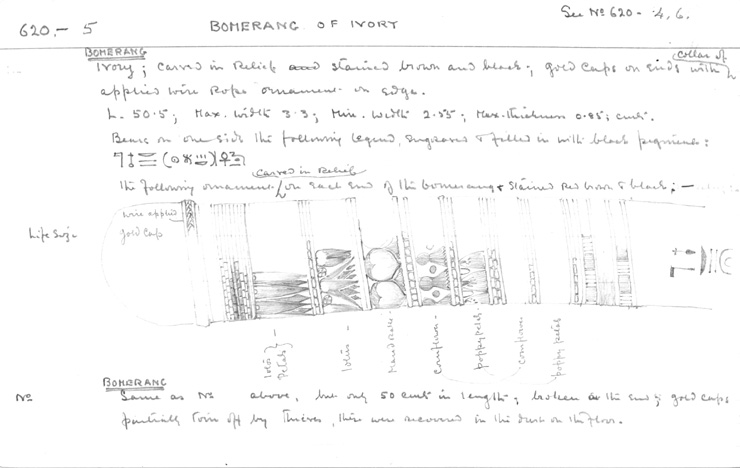 620.- 5
BOMERANG OF IVORY
See No 620- 4, 6.
BOMERANG
Ivory; carved in Relief and stained brown and black; gold caps on ends with collar of
applied wire Rope ornament on edge.
L. 50.5; Max. width 3.3; Min. width 2.55; Max. thickness 0.85; cmts.
Bears on one side the following legend, engraved & filled in with black pigment:
The following ornament carved in Relief on each end of the bomerang & stained Red brown & black; —
wire applied
gold caps
Life Size
lotus Petals
lotus
Mandrake
Cornflower
poppy petals
Cornflower
poppy petals
BOMERANG
No Same as No above, but only 50 cmts in length; broken at the end; gold caps
partially torn off by Thieves, this were recovered in the dust on the floor.